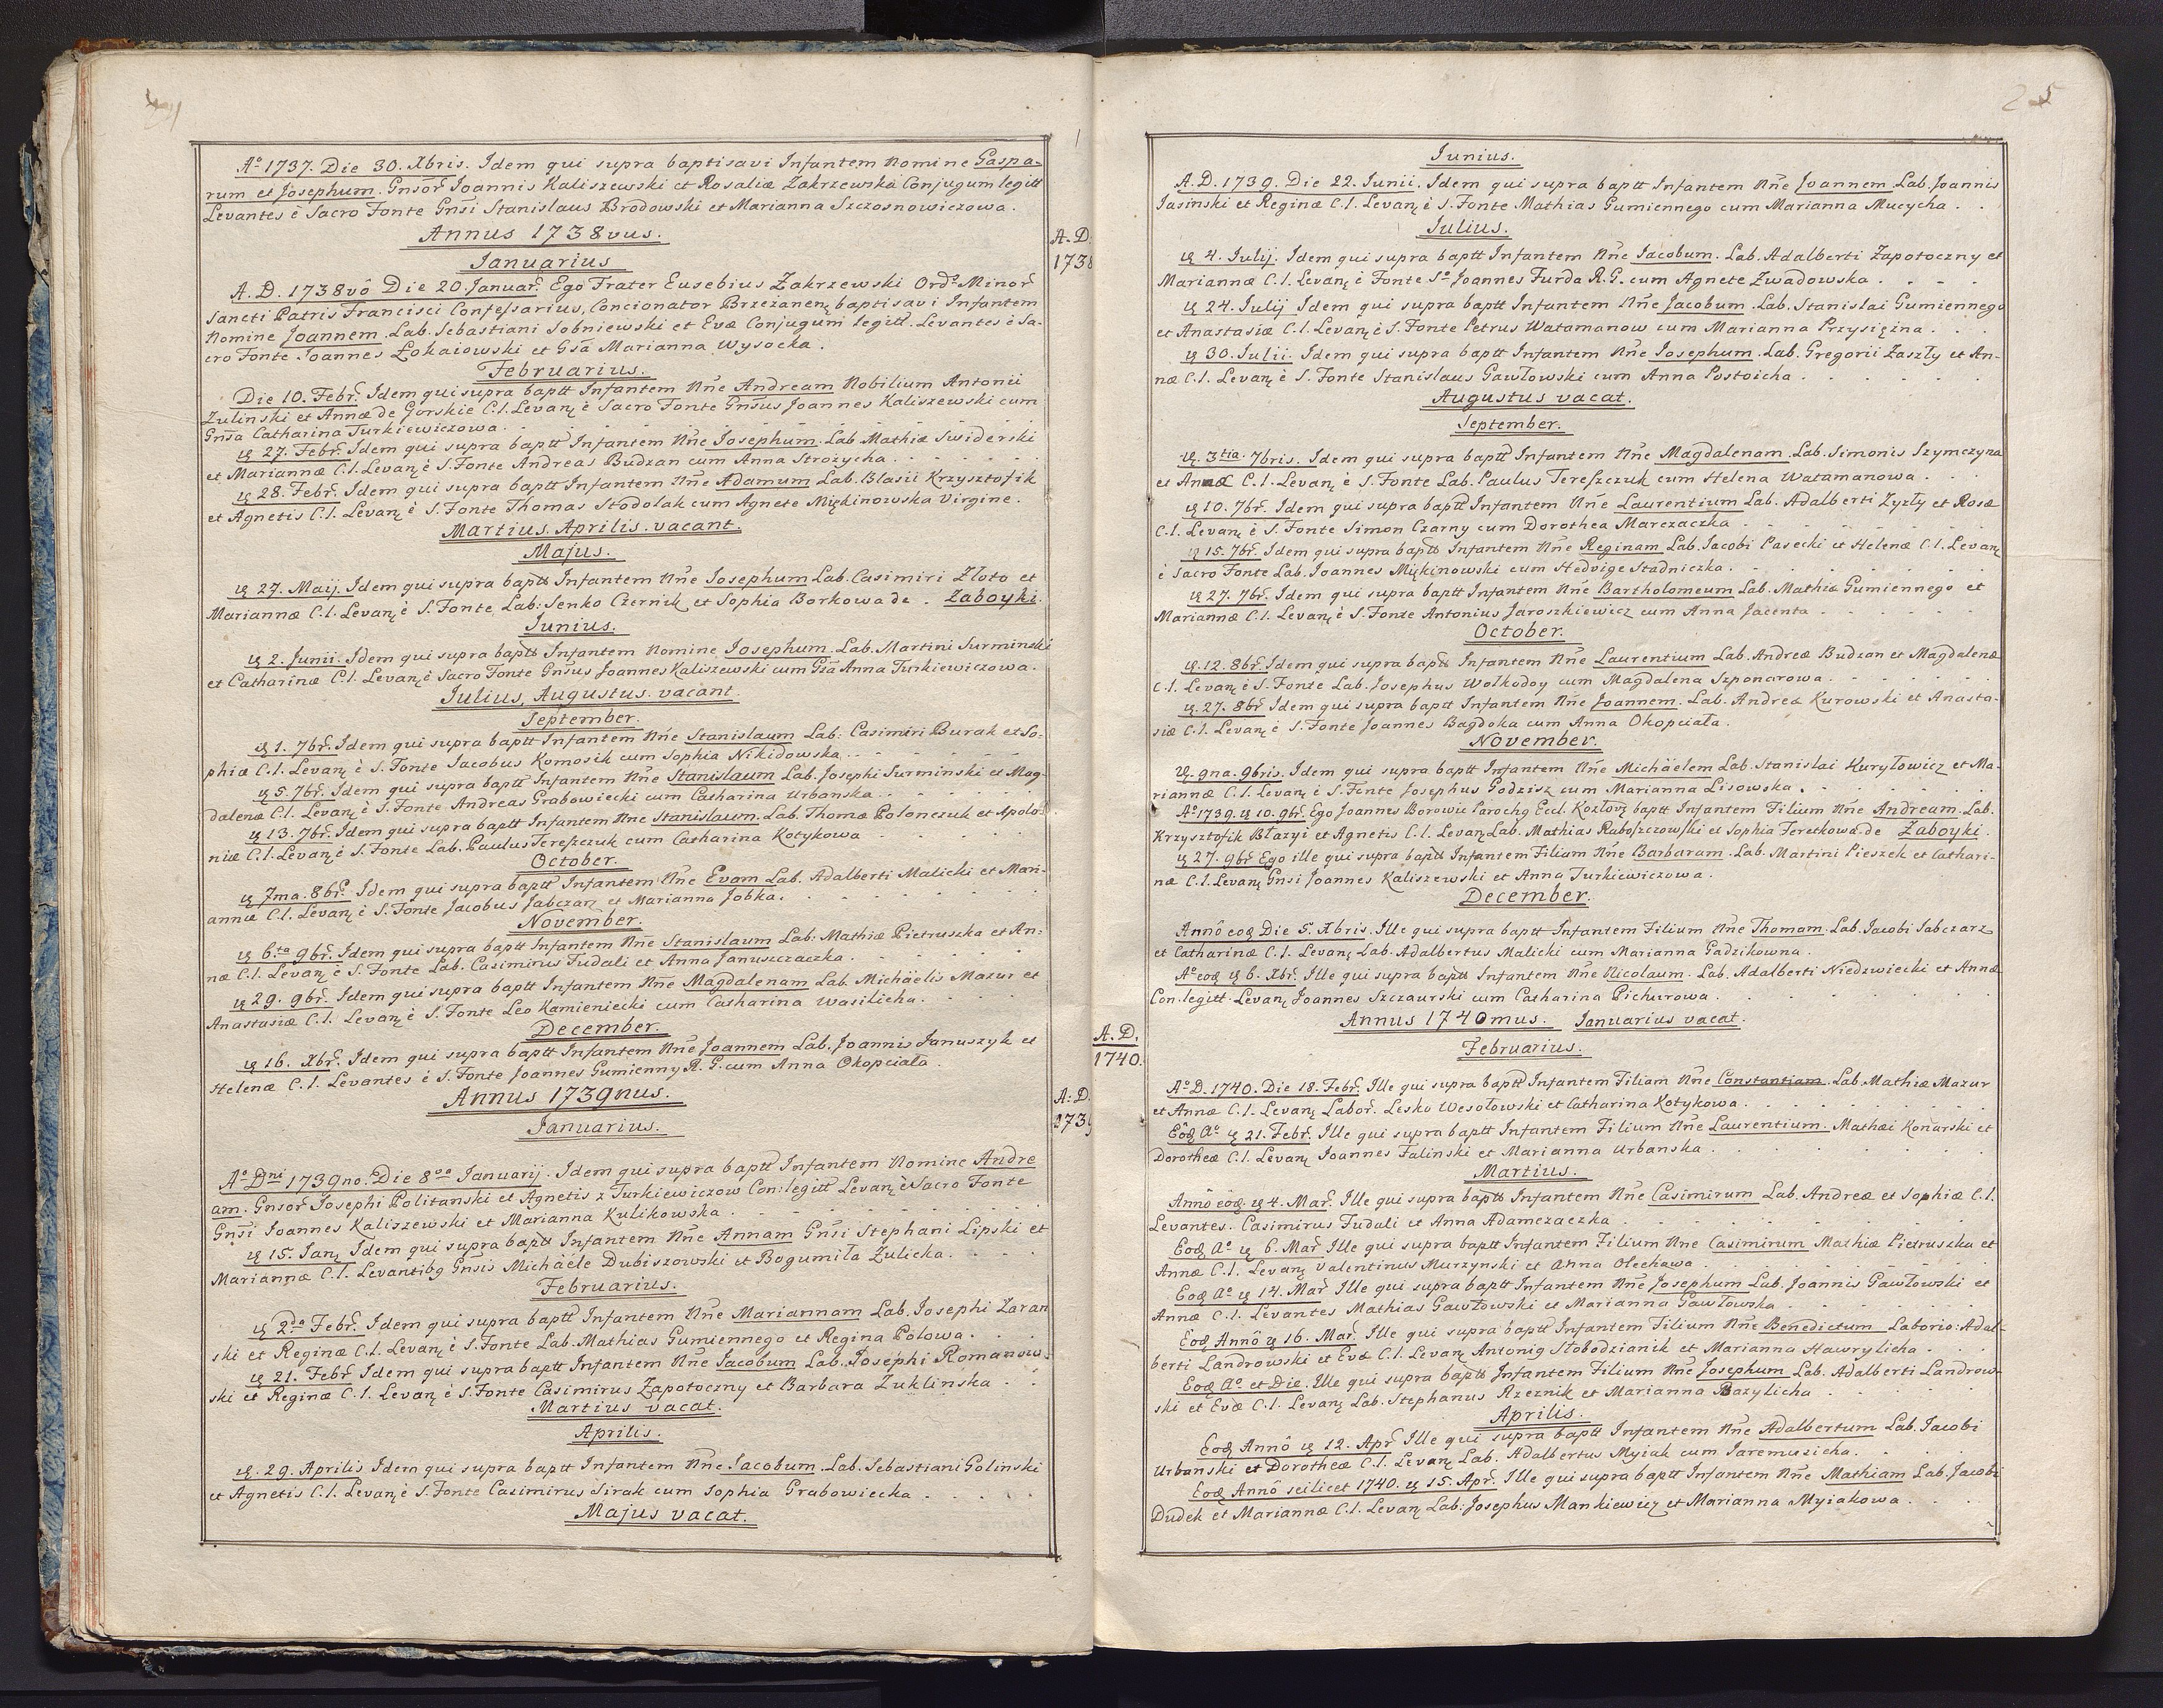 24
Aº 1737. Die 30. Xbris. Idem qui supra baptisavi Infantem Nomine Gaspa-
rum et Josephum. Gnsor̃ Joannis Kaliszewski et Rosaliæ Zakrzewska Conjugum legitt
Levantes è Sacro Fonte Gnsi Stanislaus Brodowski et Marianna Szczosnowiczowa.
Annus 1738vus.
A.D. 1738
Januarius
A.D. 1738vô Die 20. Januar̃. Ego Frater Eusebius Zakrzewski Ordˢ Minor̃
Sancti Patris Francisci Confessarius, Concionator Brzezanenȩ baptisavi Infantem
Nomine Joannem. Lab. Sebastiani Sobniewski et Evæ Conjugum legitt. Levantes è Sa-
cro Fonte Joannes Łokaiowski et Gsã Marianna Wysocka.
Februarius.
Die 10. Febr̃. Idem qui supra baptt Infantem Nñe Andream Nobilium Antonii
Zulinski et Annæ de Gorskie C.l. Levanȩ è Sacro Fonte Gnsus Joannes Kaliszewski cum
Gnsa Catharina Turkiewiczowa.
ıȩ 27. Febr̃. Idem qui supra baptt Infantem Nñe Josephum. Lab. Mathiæ Swiderski
et Mariannæ C.l. Levanȩ è S. Fonte Andreas Budzan cum Anna Strozycha.
ıȩ 28. Febr̃. Idem qui supra baptt Infantem Nñe Adamum Lab. Blasii Krzysztofik
et Agnetis C.l. Levanȩ è S. Fonte Thomas Stodolak cum Agnete Miękinowska Virgine.
Martius. Aprilis. vacant.
Majus.
ıȩ 27. Maij. Idem qui supra baptt Infantem Nñe Josephum Lab. Casimiri Złoto et
Mariannæ C.l. Levanȩ è S. Fonte Lab: Senko Czernik et Sophia Borkowa de. Zaboyki.
Junius.
ıȩ 2. Junii. Idem qui supra baptt Infantem Nomine Josephum. Lab. Martini Surminski
et Catharinæ C.l. Levanȩ è Sacro Fonte Gnsus Joannes Kaliszewski cum Gsã Anna Turkiewiczowa.
Julius, Augustus. vacant.
September.
ıȩ 1. 7br̃. Idem qui supra baptt Infantem Nñe Stanislaum Lab: Casimiri Burak et So-
phiæ C.l. Levanȩ è S. Fonte Jacobus Komosik cum Sophia Nikidowska.
ıȩ 5. 7br̃. Idem qui supra baptt Infantem Nñe Stanislaum Lab. Josephi Surminski et Mag-
dalenæ C.l. Levanȩ è S. Fonte Andreas Grabowiecki cum Catharina Urbanska.
ıȩ 13. 7br̃. Idem qui supra baptt Infantem Nñe Stanislaum. Lab. Thomæ Polonczuk et Apolo-
niæ C.l. Levanȩ è S. Fonte Lab. Paulus Tereszczuk cum Catharina Kotykowa
October.
ıȩ 7ma. 8br̃. Idem qui supra baptt Infantem Nñe Evam Lab. Adalberti Malicki et Mari-
annæ C.l. Levanȩ è S. Fonte Jacobus Jabczarz et Marianna Jobka.
November.
ıȩ 6ta 9br̃. Idem qui supra baptt Infantem Nñe Stanislaum Lab: Mathiæ Pietruszka et An-
næ C.l. Levanȩ è S. Fonte Lab. Casimirus Tudali et Anna Januszczaczka.
ıȩ 29. 9br̃. Idem qui supra baptt Infantem Nñe Magdalenam Lab. Michäelis Mazur et
Anastasiæ C.l. Levanȩ è S. Fonte Leo Kamieniecki cum Catharina Wasilicha.
December.
ıȩ 16. Xbr̃. Idem qui supra baptt Infantem Nñe Joannem Lab. Joannis Januszyk et
Helenæ C.l. Levantes è S. Fonte Joannes Gumienny R.G. cum Anna Okopciała.
Annus 1739nus.
A:D. 1739
Januarius.
Aº Dni 1739no. Die 8va Januarij. Idem qui supra baptt Infantem Nomine Andre
am. Gnsor̃ Josephi Politanski et Agnetis z Turkiewiczow Con: legitt Levanȩ è Sacro Fonte
Gnsi Joannes Kaliszewski et Marianna Kulikowska.
ıȩ 15. Janȩ Idem qui supra baptt Infantem Nñe Annam Gnsi Stephani Lipski et
Mariannæ C.l. Levantibꝯ Gnsis Michäele Dubiszowski et Bogumiła Zulicka.
Februarius.
ıȩ 2da Febr̃. Idem qui supra baptt Infantem Nñe Mariannam Lab. Josephi Zaran
ski et Reginæ C.l. Levanȩ è S. Fonte Lab. Mathias Gumiennego et Regina Polowa.
ıȩ 21. Febr̃ Idem qui supra baptt Infantem Nñe Jacobum Lab. Josephi Romanow-
ski et Reginæ C.l. Levanȩ è S. Fonte Casimirus Zapotoczny et Barbara Zuklinska
Martius vacat.
Aprilis.
ıȩ. 29. Aprilis Idem qui supra baptt Infantem Nñe Jacobum. Lab. Sebastiani Golinski
et Agnetis C.l. Levanȩ è S. Fonte Casimirus Sirak cum Sophia Grabowiecka
Majus vacat.
25
Junius.
A.D. 1739. Die 22. Junii. Idem qui supra baptt Infantem Nñe Joannem Lab. Joannis
Jasinski et Reginæ C.l. Levanȩ è S. Fonte Mathias Gumiennego cum Marianna Mucycha.
Julius.
ıȩ 4. Julij. Idem qui supra baptt Infantem Nñe Jacobum. Lab. Adalberti Zapotoczny et
Mariannæ C.l. Levanȩ è Fonte Sº Joannes Furda R.G. cum Agnete Zwadowska.
ıȩ 24. Julij Idem qui supra baptt Infantem Nñe Jacobum. Lab. Stanislai Gumiennego
et Anastasiæ C.l. Levanȩ è S. Fonte Petrus Watamanow cum Marianna Przysięzna.
ıȩ 30. Julii. Idem qui supra baptt Infantem Nñe Josephum. Lab. Gregorii Zaszły et An-
næ C.l. Levanȩ è S. Fonte Stanislaus Gawłowski cum Anna Postoicha.
Augustus vacat.
September.
ıȩ. 3tia. 7bris. Idem qui supra baptt Infantem Nñe Magdalenam. Lab. Simonis Szymczyna
et Annæ C.l. Levanȩ è S. Fonte Lab. Paulus Tereszczuk cum Helena Watamanowa.
ıȩ 10. 7br̃. Idem qui supra baptt Infantem Nñe Laurentium Lab. Adalberti Zyzły et Rosæ
C.l. Levanȩ è S. Fonte Simon Czarny cum Dorothea Marczaczka
ıȩ 15. 7br̃. Idem qui supra baptt Infantem Nñe Reginam Lab. Jacobi Pasecki et Helenæ C.l. Levanȩ
è Sacro Fonte Lab. Joannes Miękinowski cum Hedvige Stadniczka.
ıȩ 27. 7br̃. Idem qui supra baptt Infantem Nñe Bartholomeum Lab. Mathiæ Gumiennego et
Mariannæ C.l. Levanȩ è S. Fonte Antonius Jaroszkiewicz cum Anna Jacenta
October.
ıȩ. 12. 8br̃. Idem qui supra baptt Infantem Nñe Laurentium Lab. Andreæ Budzan et Magdalenæ
C.l. Levanȩ è S. Fonte Lab. Josephus Wołkodoy cum Magdalena Szponarowa.
ıȩ. 27. 8br̃ Idem qui supra baptt Infantem Nñe Joannem. Lab. Andreæ Kurowski et Anasta-
siæ C.l. Levanȩ è S. Fonte Joannes Bagdoka cum Anna Okopciała.
November.
ıȩ. 9na. 9bris. Idem qui supra baptt Infantem Nñe Michäelem Lab. Stanislai Kuryłowicz et Ma-
riannæ C.l. Levanȩ è S. Fonte Josephus Godzisz cum Marianna Lisowska.
Aº 1739. ıȩ 10. 9br̃. Ego Joannes Borowic Parochꝯ Eccl. Kozłovȩ baptt Infantem Filium Nñe Andream. Lab.
Krzysztofik Błazyi et Agnetis C.l. Levanȩ Lab. Mathias Raboszczowski et Sophia Feretkowa de Zaboyki.
ıȩ 27. 9br̃ Ego ille qui supra baptt Infantem Filium Nñe Barbaram. Lab. Martini Pieszek et Cathari-
næ C.l. Levanȩ Gnsi Joannes Kaliszewski et Anna Turkiewiczowa.
December.
Annô eoȡ Die 5. Xbris. Ille qui supra baptt Infantem Filium Nñe Thomam. Lab. Jacobi Jabczarz
et Catharinæ C.l. Levanȩ Lab. Adalbertus Malicki cum Marianna Gadzikowna.
Aº eoȡ ıȩ 6. Xbr̃. Ille qui supra baptt Infantem Nñe Nicolaum. Lab. Adalberti Niedzwiecki et Annæ
Con. legitt. Levanȩ Joannes Szczaurski cum Catharina Pichurowa.
Annus 1740mus. Januarius vacat.
A.D. 1740.
Februarius.
Aº D. 1740. Die 18. Febr̃. Ille qui supra baptt Infantem Filiam Nñe Constantiam. Lab. Mathiæ Mazur
et Annæ C.l. Levanȩ Labor̃. Lesko Wesołowski et Catharina Kotykowa.
Eôȡ Aº ıȩ 21. Febr̃. Ille qui supra baptt Infantem Filium Nñe Laurentium. Mathæi Konarski et
Dorotheæ C.l. Levanȩ Joannes Falinski et Marianna Urbanska.
Martius.
Annô eôȡ. ıȩ 4. Mar̃. Ille qui supra baptt Infantem Nñe Casimirum Lab. Andreæ et Sophiæ C.l.
Levantes. Casimirus Tudali et Anna Adamczaczka
Eoȡ Aº ıȩ 6. Mar̃ Ille qui supra baptt Infantem Filium Nñe Casimirum Mathiæ Pietruszka et
Annæ C.l. Levanȩ Valentinus Murzynski et Anna Olechawa
Eoȡ Aº ıȩ 14. Mar̃ Ille qui supra baptt Infantem Nñe Josephum Lab. Joannis Gawłowski et
Annæ C.l. Levantes Mathias Gawłowski et Marianna Gawłowska
Eoȡ Annô ıȩ 16. Mar̃. Ille qui supra baptt Infantem Filium Nñe Benedictum Laborio: Adal-
berti Landrowski et Evæ C.l. Levanȩ Antonig Słobodzianik et Marianna Hawrylicha.
Eoȡ Aº et Die. Ille qui supra baptt Infantem Filium Nñe Josephum Lab. Adalberti Landrow-
ski et Evæ C.l. Levanȩ Lab. Stephanus Rzeznik et Marianna Bazylicha
Aprilis.
Eoȡ Annô ıȩ 12. Apr̃ Ille qui supra baptt Infantem Nñe Adalbertum Lab. Jacobi
Urbanski et Dorotheæ C.l. Levanȩ Lab. Adalbertus Myiak cum Jaremuzicha.
Eoȡ Annô scilicet 1740. ıȩ 15. Apr̃. Ille qui supra baptt Infantem Nñe Mathiam Lab. Jacobi
Dudek et Mariannæ C.l. Levanȩ Lab: Josephus Mankiewicz et Marianna Myiakowa.